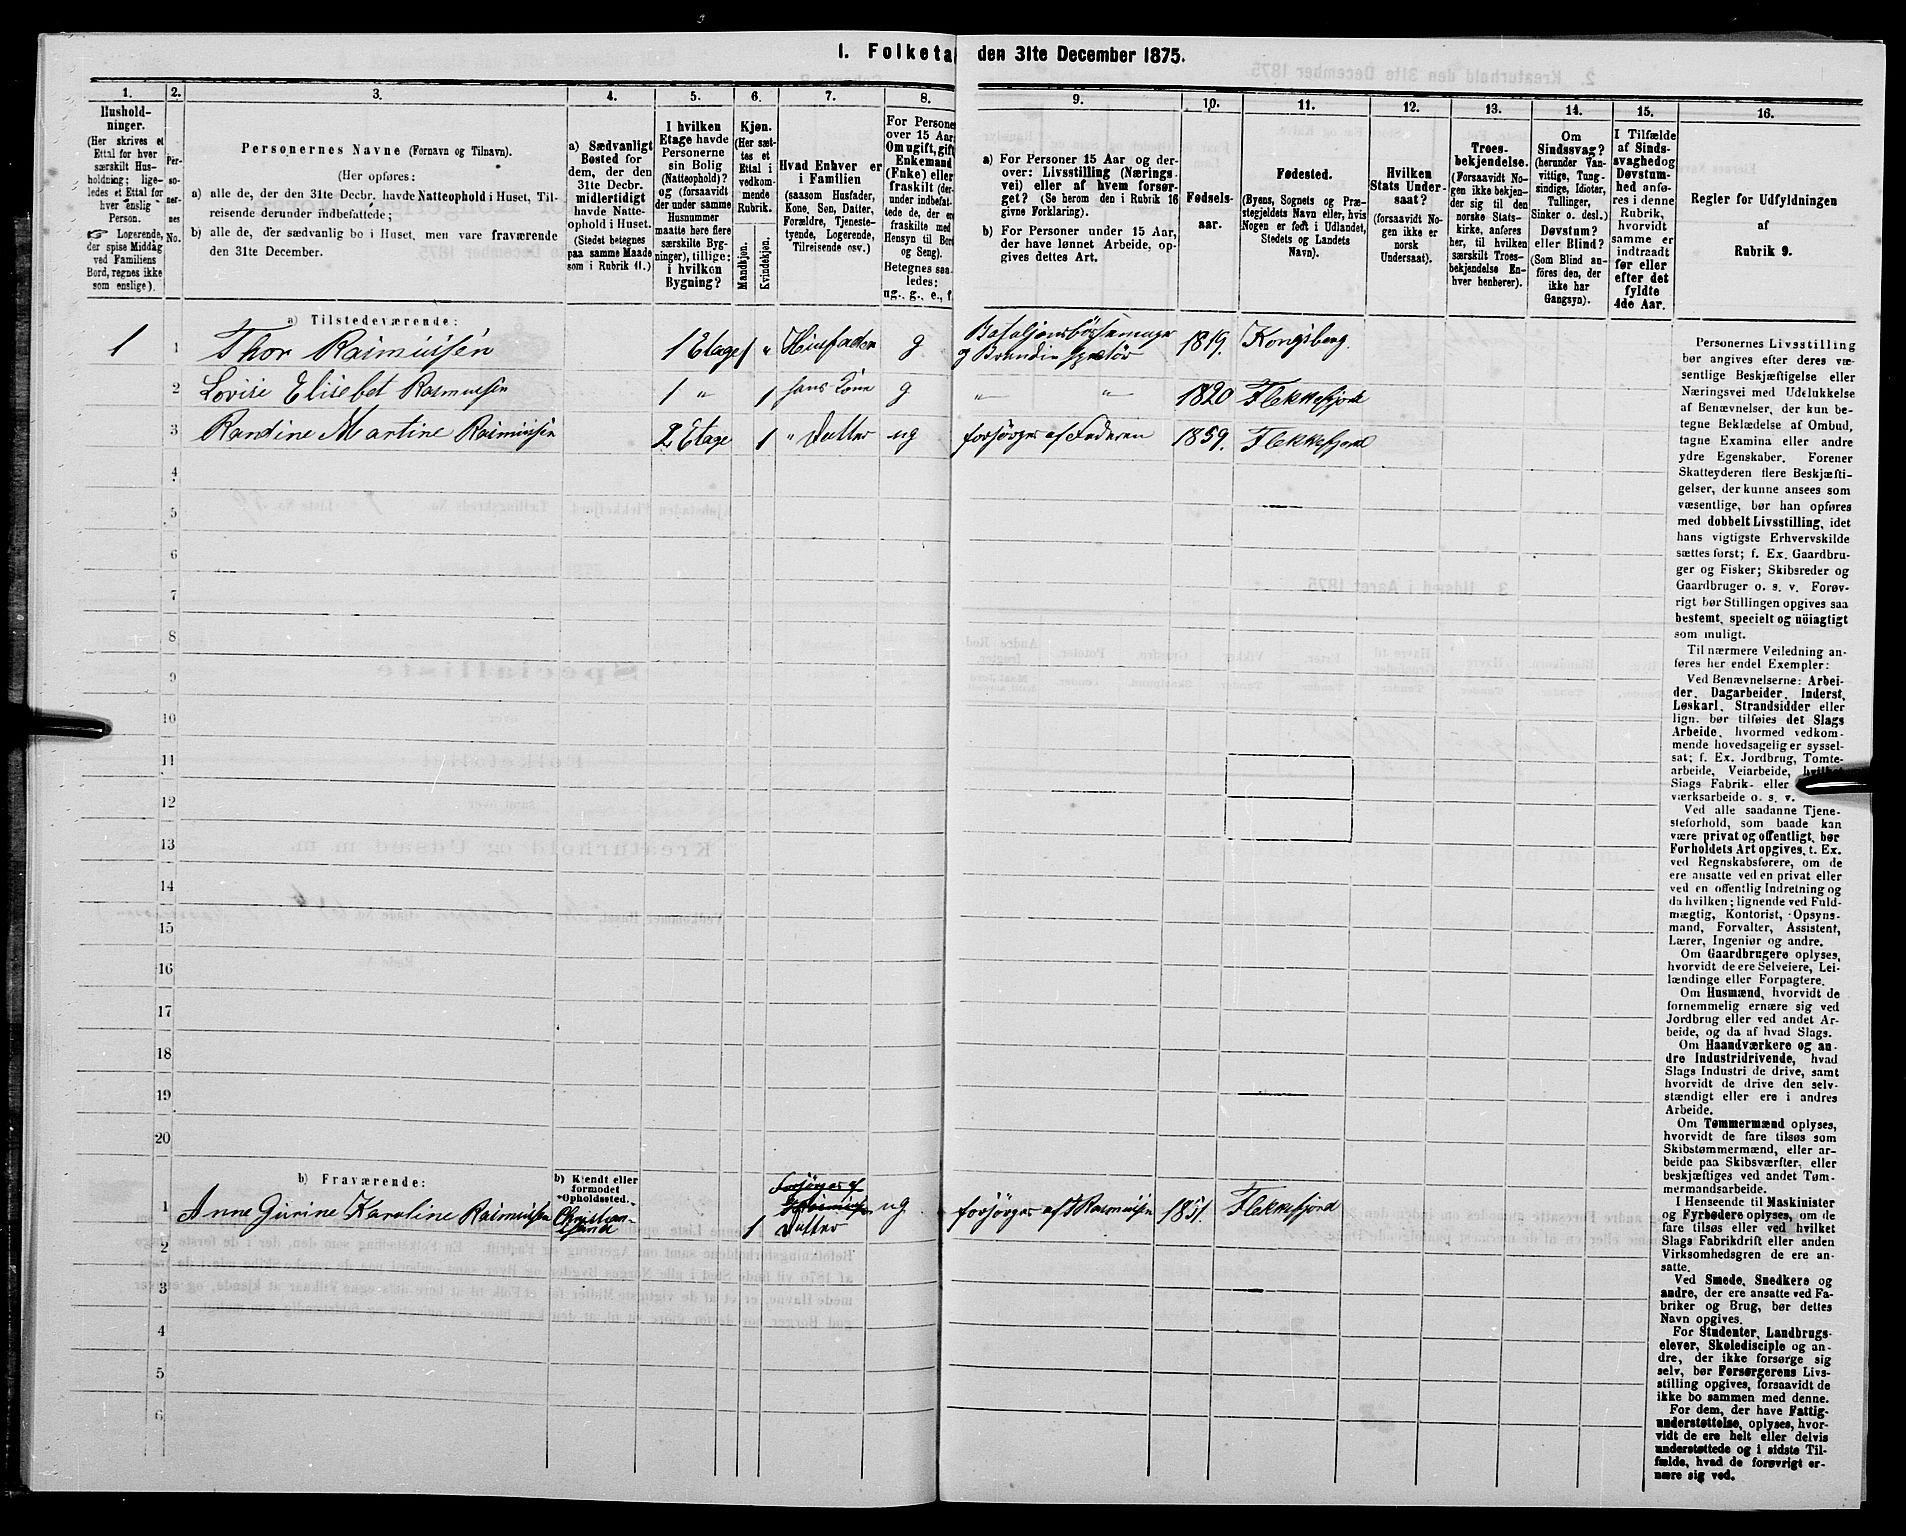 1. Folketa den 31te December 1875.
1. 2. 3. 4. 5. 6. 7. 8. 9. 10. 11. 12. 13. 14. 15. 16.
Hushold-
ninger.
(Her skrives et
Ettal for hver
særskilt Hus-
holdning; lige-
ledes et Ettal for
hver enslig
Person.
☞ Logerende,
der spise Middag
ved Familiens
Bord, regnes ikke
som enslige).
Per-
so-
ner-
nes
No.
Personernes Navne (Fornavn og Tilnavn).
(Her opføres:
a) alle de, der den 31te Decbr. havde Natteophold i Huset, Til-
reisende derunder indbefattede;
b) alle de, der sædvanlig bo i Huset, men vare fraværende
den 31te December.
a) Sædvanligt
Bosted for
dem, der den
31te Decbr.
midlertidigt
havde Natte-
ophold i Huset.
(Stedet betegnes
paa samme Maade
som i Rubrik 11.)
I hvilken
Etage havde
Personerne
sin Bolig
(Natteophold)?
og (forsaavidt
der under samme
Husnummer
maatte høre flere
særskilte Byg-
ninger), tillige:
i hvilken
Bygning?
Kjøn.
(Her sæt-
tes et
Ettal i
vedkom-
mende
Rubrik.
Mandkjøn.
Kvindekjøn.
Hvad Enhver er
i Familien
(saasom Husfader,
Kone, Søn, Datter,
Forældre, Tjeneste-
tyende, Logerende,
Tilreisende osv.)
For Persone
over 15 Aar
Om ugift, gift
Enkemand
(Enke) eller
fraskilt (der-
under indbefat-
tede de, der er
fraskilte med
Hensyn til Bord
og Seng).
Betegnes saa-
ledes:
ug., g., e., f.
a) For Personer 15 Aar og der-
over: Livsstilling (Nærings-
vei) eller af hvem forsør-
get? (Se herom den i Rubrik 16
givne Forklaring).
b) For Personer under 15 Aar,
der have lønnet Arbeide, op-
gives dettes Art.
Fødsels-
aar.
Fødested.
(Byens, Sognets og Præ-
stegjeldets Navn eller, hvis
Nogen er født i Udlandet,
Stedets og Landets
Navn).
Hvilken
Stats Under-
saat?
(forsaavidt No-
gen ikke er
norsk
Undersaat).
Troes-
bekjendelse.
(Forsaavidt No-
gen ikke bekjen-
der sig til den
norske Stats-
kirke, anføres
her, til hvilken
særskilt Troes-
bekjendelse En-
hver henhører).
Om
Sindssvag?
(herunder Van-
vittige, Tung-
sindige, Idioter,
Tullinger,
Sinker o. desl.)
Døvstum?
eller Blind?
(Som Blind an-
føres den, der
ikke har
Gangsyn).
I Tilfælde
af Sinds-
svaghed og
Døvstum-
hed anfø-
res i denne
Rubrik,
hvorvidt
samme er
indtraadt
før eller
efter det
fyldte
4de Aar.
Regler for Udfyldningen
af
Rubrik 9.
a) Tilstedeværende:
1 1 Thor Rasmussen 1 Etage 1 " Husfader g Bataljonsbøssemager 1819. Kongsberg.
og Brandinspektør
2 Lovise Elisebet Rasmussen 1 " 1 hans Kone g " " 1820 Flekkefjord
3 Randine Martine Rasmussen 2 Etage 1 " Datter ug forsørges af Faderen 1859. Flekkefjord
4
5
6
7
8
9
10
11
12
13
14
15
16
17
18
19
20
b) Fraværende:
b) Kjendt eller
formodet
Opholdssted.
1 Anne Gurine Karoline Rasmussen Christian-
sand 1 Datter ug forsørges af Rasmussen 1851. Flekkefjord
2
3
4
5
6
Personernes Livsstilling
bør angives efter deres væ-
sentlige Beskjæftigelse eller
Næringsvei med Udelukkelse
af Benævnelser, der kun be-
tegne Beklædelse af Ombud,
tagne Examina eller andre
ydre Egenskaber. Forener
Skatteyderen flere Beskjæfti-
gelser, der kunne ansees som
væsentlige, bør han opføres
med dobbelt Livsstilling, idet
hans vigtigste Erhvervskilde
sættes først; f. Ex. Gaardbru-
ger og Fisker; Skibsreder og
Gaardbruger o. s. v. Forøv-
rigt bør Stillingen opgives saa
bestemt, specielt og nöiagtigt
som muligt.
Til nærmere Veiledning an-
føres her endel Exempler:
Ved Benævnelserne: Arbei-
der, Dagarbeider, Inderst,
Løskarl, Strandsidder eller
lign. bør tilføies det Slags
Arbeide, hvormed vedkom-
mende hovedsagelig er syssel-
sat; f. Ex. Jordbrug, Tomte-
arbeide, Veiarbeide, hvilket
Slags Fabrik- eller
værksarbeide o. s. v.
Ved alle saadanne Tjene-
steforhold, som baade kan
være privat og offentligt, bør
Forholdets Art opgives, t. Ex.
ved Regnskabsførere, om de
ere ansatte ved en privat eller
ved en offentlig Indretning og
da hvilken; lignende ved Fuld-
mægtig, Kontorist, Opsyns-
mand, Forvalter, Assistent,
Lærer, Ingeniør og andre.
Om Gaardbrugere oplyses,
hvorvidt de ere Selveiere, Lei-
lændinge eller Forpagtere.
Om Husmænd, hvorvidt de
fornemmelig ernære sig ved
Jordbrug eller ved andet Ar-
beide, og da af hvad Slags.
Om Haandværkere og an-
dre Industridrivende, hvad
Slags Industri de drive, samt
hvorvidt de drive den selv-
stændigt eller ere i andres
Arbeide.
Om Tømmermænd oplyses,
hvorvidt de fare tilsøs som
Skibstømmermænd, eller ar-
beide paa Skibsværfter, eller
beskjæftiges ved andet Tøm-
mermandsarbeide.
I Henseende til Maskinister
og Fyrbødere oplyses, om de
fare tilsøs eller ved hvilket
Slags Fabrikdrift eller anden
Virksomhedsgren de ere an-
satte.
Ved Smede, Snedkere og
andre, der ere ansatte ved Fa-
briker og Brug, bør dettes
Navn opgives.
For Studenter, Landbrugs-
elever, Skoledisciple og an-
dre, der ikke forsørge sig
selv, bør Forsørgerens Livs-
stilling opgives, forsaavidt de
ikke bo sammen med denne.
For dem, der have Fattig-
understøttelse, oplyses, hvor-
vidt de ere helt eller delvis
understøttede og i sidste Til-
fælde, hvad de forøvrigt er-
nære sig ved.